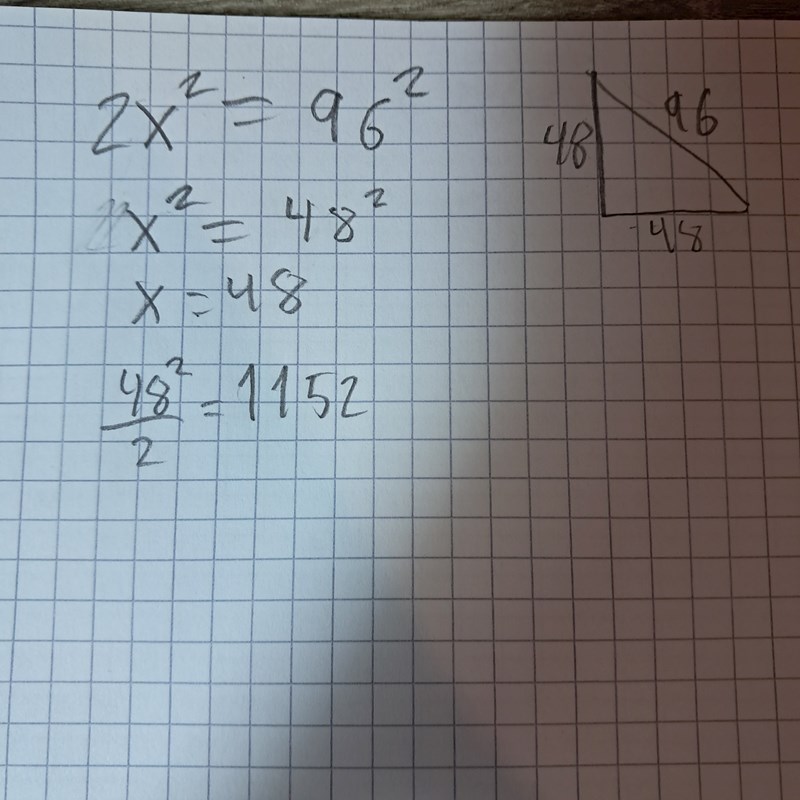 2x² = 96²
x² = 48²
x = 48
48²/2 = 1152
96
48
48